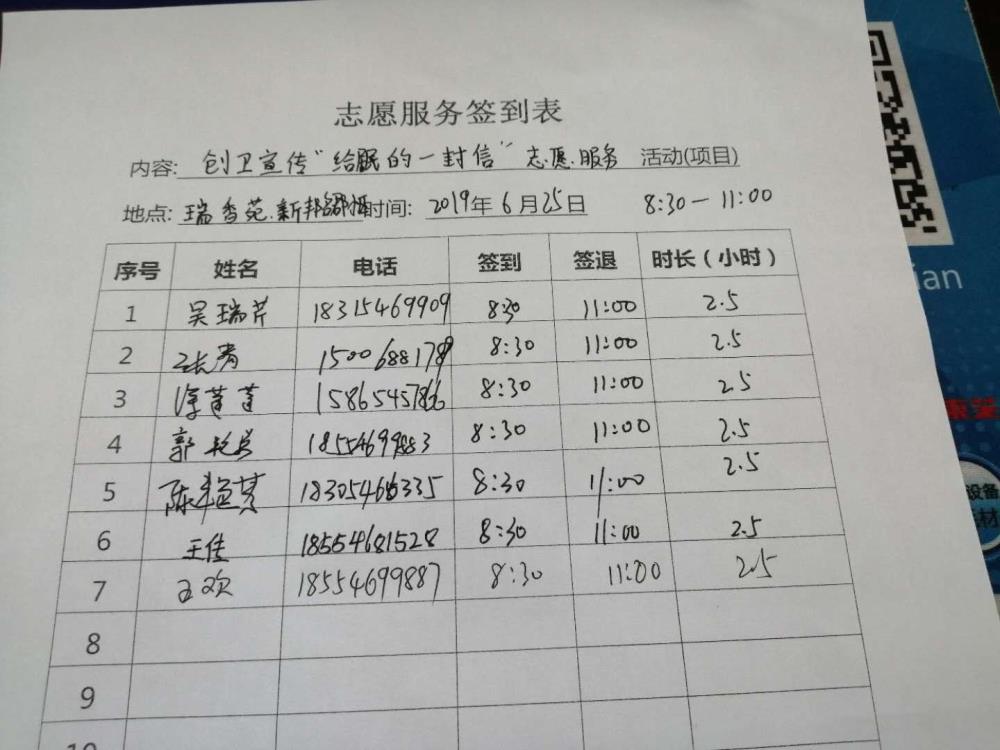 志愿服务签到表
内容: 创卫宣传"给居民的一封信"志愿服务 活动(项目)
地点: 瑞香苑.新邦 时间: 2019年6月25日 8:30—11:00
序号 姓名 电话 签到 签退 时长(小时)
1 吴瑞芹 18315469909 8:30 11:00 2.5
2 张青 8:30 11:00 2.5
3 8:30 11:00 2.5
4 郭 18554699883 8:30 11:00 2.5
5 陈 8:30 11:00 2.5
6 王佳 18554681528 8:30 11:00 2.5
7 王欢 18554699887 8:30 11:00 2.5
8
9
10
ian
设备
材